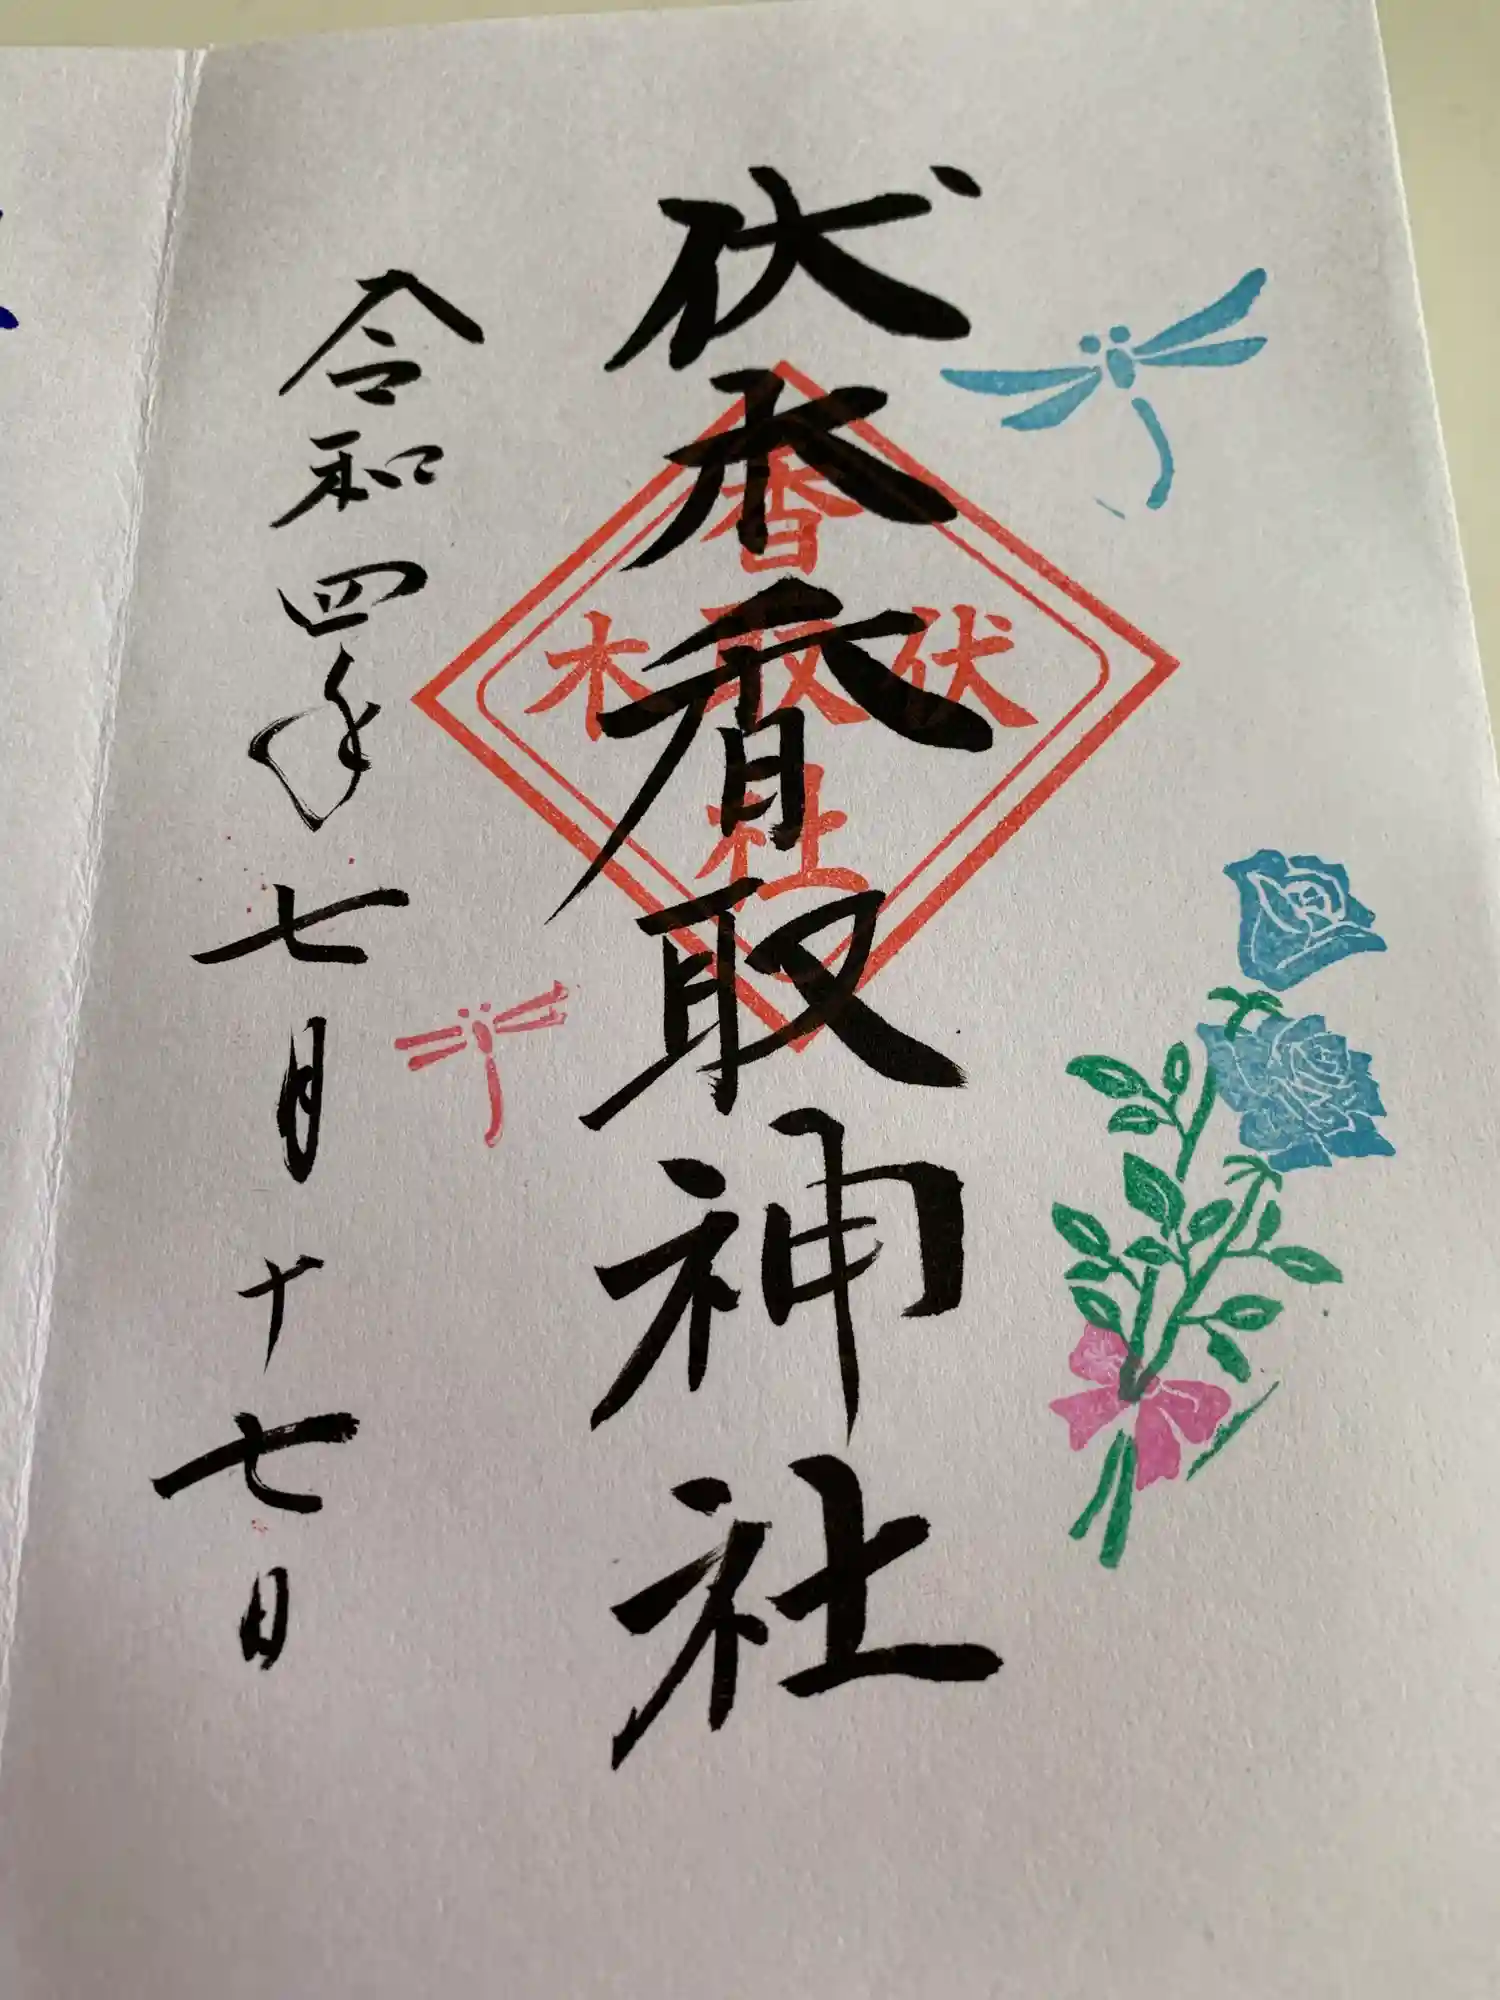 伏木香取神社
香
伏取木
社
令和四年七月十七日